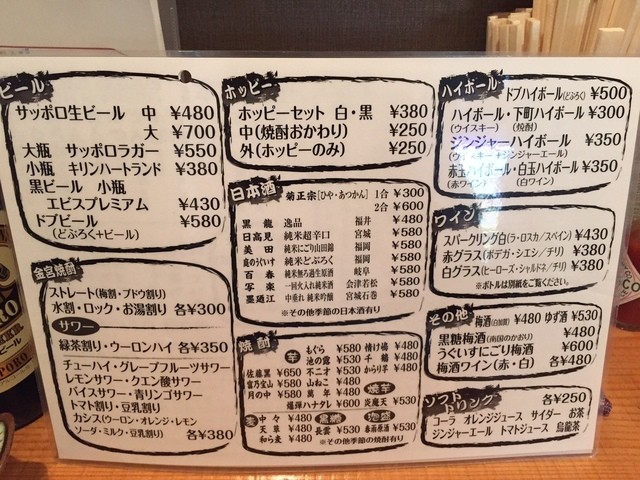 ビール
サッポロ生ビール 中 ¥480
大 ¥700
大瓶 サッポロラガー ¥550
小瓶 キリンハートランド ¥380
黒ビール 小瓶
エビスプレミアム ¥430
ドブビール ¥580
(どぶろく+ビール)
金宮焼酎
ストレート(梅割・ブドウ割)
水割・ロック・お湯割り 各¥300
サワー
緑茶割り・ウーロンハイ 各¥350
チューハイ・グレープフルーツサワー
レモンサワー・クエン酸サワー
バイスサワー・青リンゴサワー
トマト割り・豆乳割り
カシス(ウーロン・オレンジ・レモン
ソーダ・ミルク・豆乳割り) 各¥380
ホッピー
ホッピーセット 白・黒 ¥380
中(焼酎おかわり) ¥250
外(ホッピーのみ) ¥250
日本酒
菊正宗[ひや・あつかん] 1合 ¥300
2合 ¥600
黒龍 逸品 福井 ¥480
日高見 純米超辛口 宮城 ¥580
美田 純米にごり山田錦 福岡 ¥580
庭のうぐいす 純米どぶろく 福岡 ¥580
百春 純米無ろ過生原酒 岐阜 ¥580
写楽 一回火入れ純米酒 会津若松 ¥580
墨廼江 中垂れ 純米吟醸 宮城石巻 ¥580
※その他季節の日本酒有り
焼酎
芋
佐藤黒 ¥650
富乃宝山 ¥580
月の中 ¥580
もぐら ¥580
池の露 ¥530
不二才 ¥530
山ねこ ¥480
萬年 ¥480
爆弾ハナタレ ¥600
情け嶋 ¥480
千鶴 ¥480
からり芋 ¥480
焼芋
炎魔天 ¥530
麦
中々 ¥480
天草 ¥480
和ら麦 ¥480
黒糖
長雲 ¥530
泡盛
春雨原酒 ¥530
※その他季節の焼酎有り
ハイボール
ドブハイボール(どぶろく) ¥500
ハイボール・下町ハイボール ¥300
(ウイスキー) (焼酎)
ジンジャーハイボール ¥350
(ウイスキー+ジンジャーエール)
赤玉ハイボール・白玉ハイボール ¥350
(赤ワイン) (白ワイン)
ワイン
スパークリング白(ラ・ロスカ/スペイン) ¥430
赤グラス(ボデガ・シエシ/チリ) ¥380
白グラス(ヒーローズ・シャルドネ/チリ) ¥380
※ボトルは別紙をご覧ください。
その他
梅酒(白加賀) ¥480 ゆず酒 ¥530
黒糖梅酒(南国のかおり) ¥480
うぐいすにごり梅酒 ¥600
梅酒ワイン(赤・白) 各¥480
ソフトドリンク
各¥250
コーラ オレンジジュース サイダー お茶
ジンジャーエール トマトジュース 烏龍茶